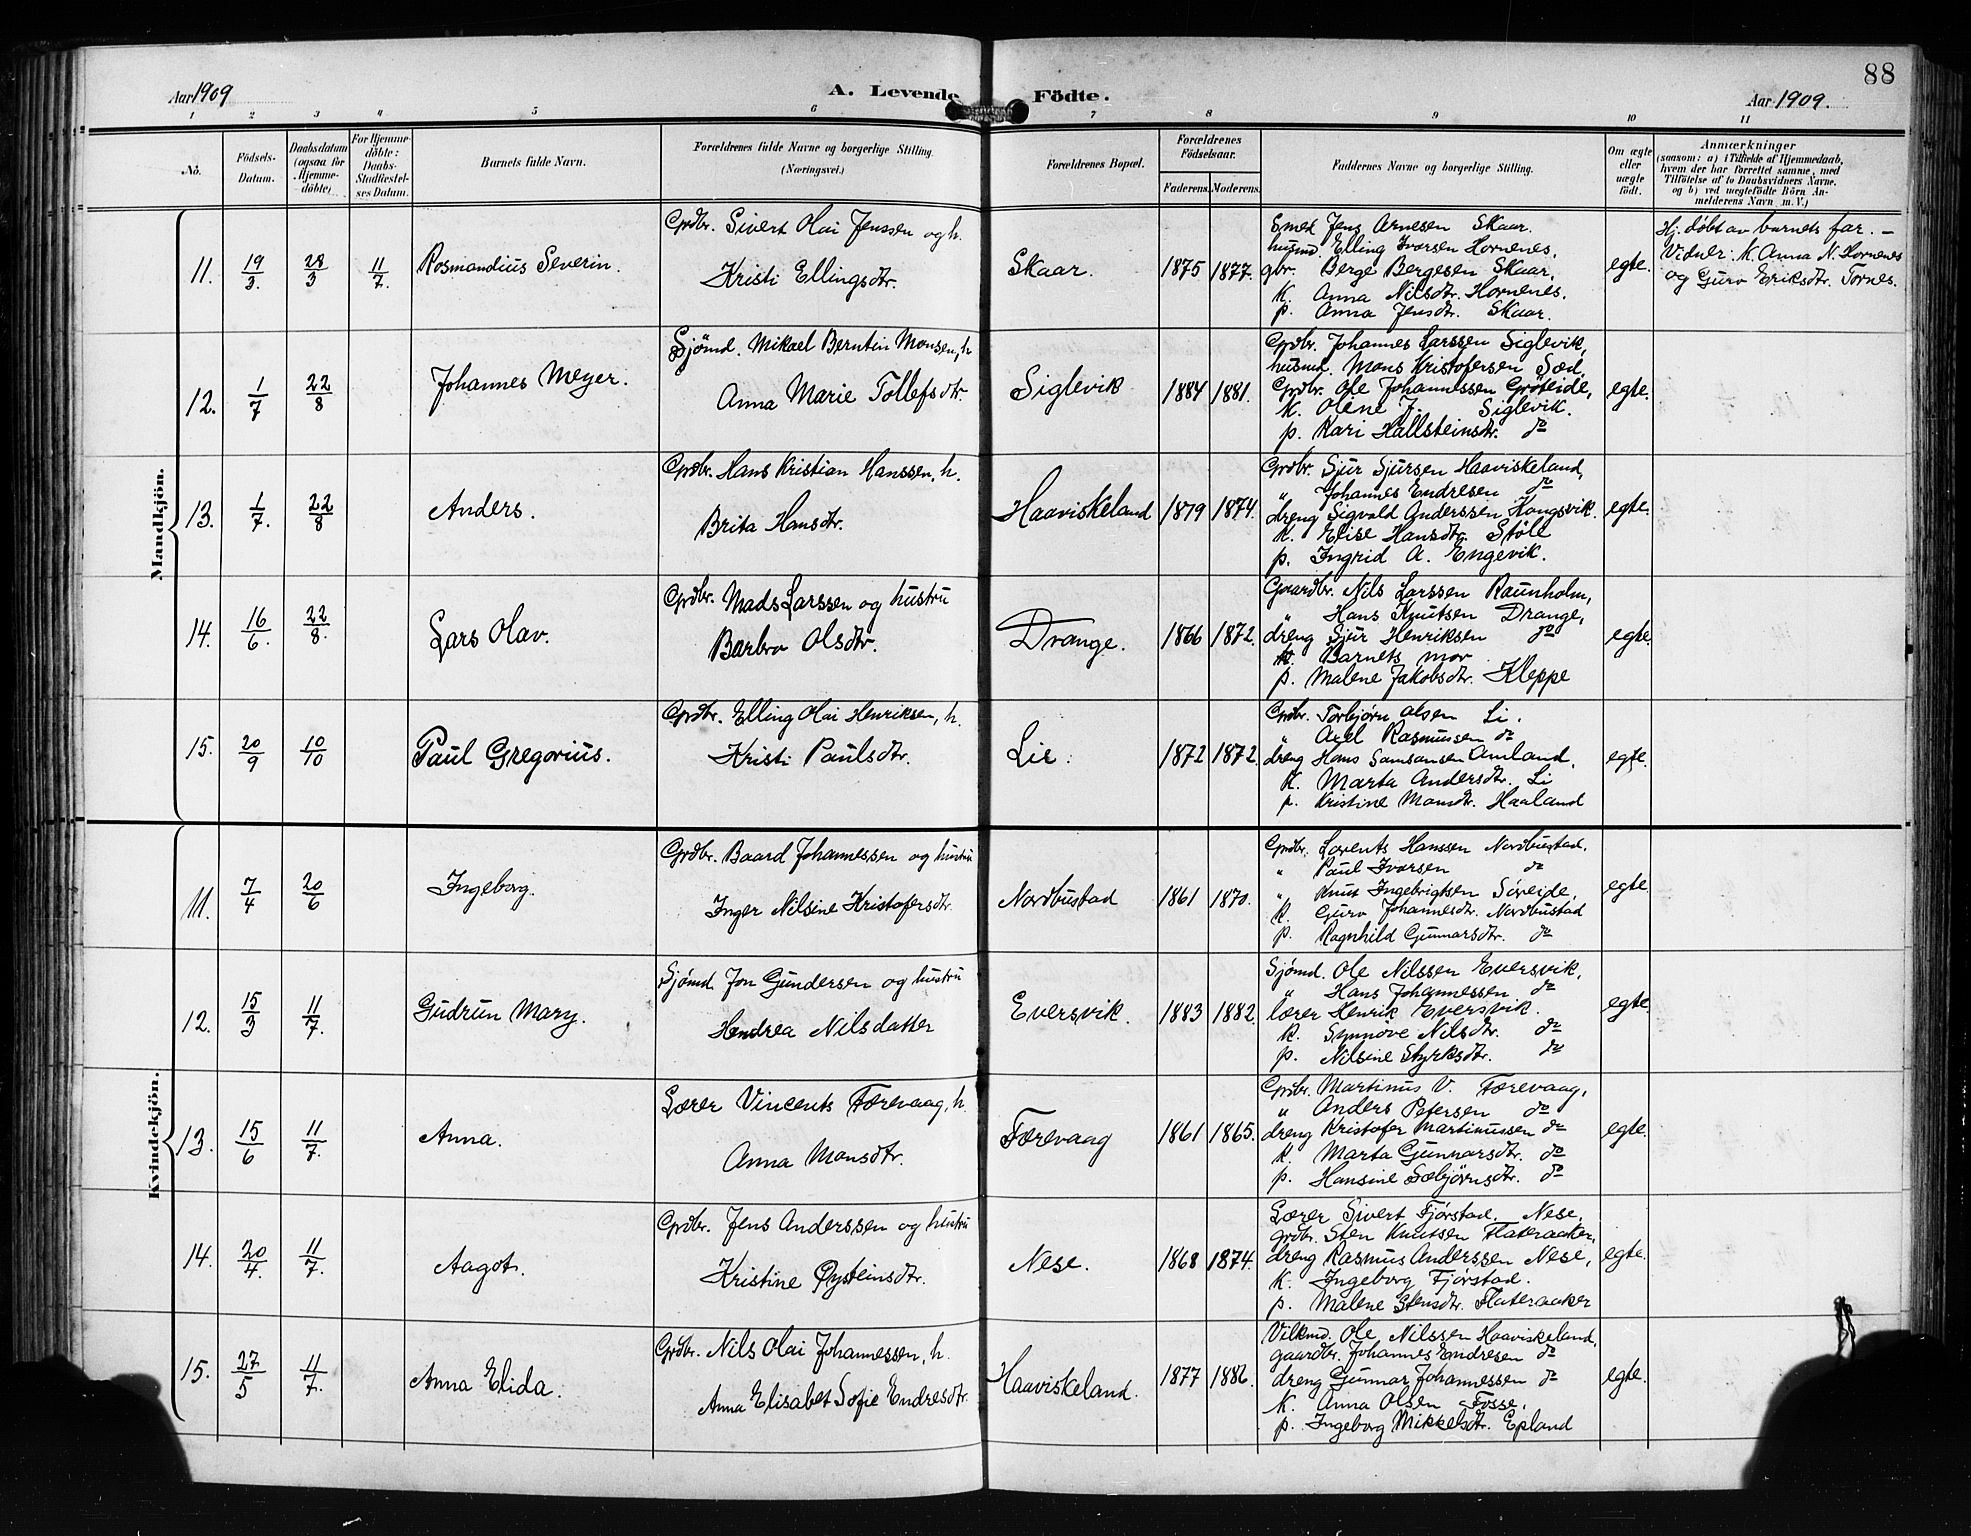 88
Aar 1909
A. Levende Födte.
Aar 1909.
1 2 3 4 5 6 7 8 9 10 11
No.
Födsels-Datum.
Daabsdatum (ogsaa for Hjemme-döbte)
For Hjemme-döbte: Daabs-Stadfæstelses Datum.
Barnets fulde Navn.
Forældrenes fulde Navne og borgerlige Stilling.
(Næringsvei.)
Forældrenes Bopæl.
Forældrenes Födselsaar.
Faderens. Moderens.
Faddernes Navne og borgerlige Stilling.
Om ægte eller uægte födt.
Anmærkninger
(saasom: a) i Tilfælde af Hjemmedaab,
hvem der har forrettet samme, med
Tilföielse af to Daabsvidners Navne,
og b) ved uegtefödte Börn An-
melderens Navn m. V.)
Mandkjön.
11. 19/3. 28/3 11/7. Rosmandius Severin.
Grdbr. Sivert Olai Jenssen og h.
Kristi Ellingsdtr.
Skaar. 1875 1877.
Smed Jens Arnesen Skaar.
husmd. Elling Ivarsen Hornenes.
gbr. Berge Bergesen Skaar.
K. Anna Nilsdtr. Hornenes.
p. Anna Jensdtr. Skaar.
egte.
Hj. döbt av barnets far. —
Vidner: K. Anna N. Hornenes
og Guro Eriksdtr. Tornes.
12. 1/7 22/8 Johannes Meyer.
Sjömd. Mikael Berntin Monsen, h
Anna Marie Tollefsdtr
Siglevik 1884 1881.
Grdbr. Johannes Larssen Siglevik,
husmd. Mons Kristofersen Sæd,
Grdbr. Ole Johannessen Gröteide,
K. Oline J. Siglevik.
p. Kari Hallsteinsdtr. do
egte.
13. 1/7. 22/8 Anders.
Grdbr. Hans Kristian Hanssen, h.
Brita Hansdtr.
Haaviskeland 1879 1874.
Grdbr. Sjur Sjursen Haaviskeland,
" Johannes Endresen do
dreng Sigvald Anderssen Kongsvik.
K. Elise Hansdtr. Støle
p. Ingrid A. Engevik.
egte.
14. 16/6. 22/8. Lars Olav.
Grdbr. Mads Larssen og hustru
Barbro Olsdtr.
Drange. 1866 1872.
Gaardbr. Nils Larssen Raunholm,
" Hans Knutsen Drange,
dreng Sjur Henriksen do
K. Barnets mor
p. Malene Jakobsdtr. Kleppe
egte
15. 20/9 10/10 Paul Gregorius.
Grdbr. Elling Olai Henriksen, h.
Kristi Paulsdtr.
Lie. 1872 1872.
Grdbr. Torbjørn Olsen Li.
" Axel Rasmussen do
dreng Hans Samsonsen Amland.
K. Marta Andersdtr. Li
p. Kristine Monsdtr. Haaland
egte.
Kvindekjön.
11. 7/4 20/6 Ingeborg.
Grdbr. Baard Johannessen og hustru
Inger Nilsine Kristofersdtr.
Nordbustad 1861 1870.
Grdbr. Lorents Hanssen Nordbustad.
" Paul Ivarsen do
" Knut Ingebrigtsen Søreide,
K. Guro Johannesdtr. Nordbustad
p. Ragnhild Gunnarsdtr. do
egte.
12. 15/3 11/7. Gudrun Mary.
Sjömd. Jon Gundersen og hustru
Hendrea Nilsdatter
Eversvik. 1883 1882.
Sjömd. Ole Nilssen Eversvik.
" Hans Johannessen do
lærer Henrik Eversvik.
K. Synnöve Nilsdtr. do
p. Nilsine Styrksdtr. do
egte.
13. 15/6 11/7. Anna.
Lærer Vincents Færevaag, h.
Anna Monsdtr.
Færevaag 1861 1865.
Grdbr. Martinus V. Færevaag,
" Anders Petersen do
dreng Kristofer Martinussen do
K. Marta Gunnarsdtr. do
p. Hansine Sæbjörnsdtr. do
egte.
14. 20/4. 11/7. Aagot.
Grdbr. Jens Anderssen og hustru
Kristine Øysteinsdtr.
Nese. 1868 1874.
Lærer Sivert Fjørstad. Nese,
grdbr. Sten Knutsen Flateraaker,
dreng Rasmus Anderssen Nese,
K. Ingeborg Fjørstad.
p. Malene Stensdtr. Flateraaker
egte.
15. 27/5 11/7. Anna Elida.
Grdbr. Nils Olai Johannessen, h.
Anna Elisabet Sofie Endresdtr.
Haaviskeland. 1877 1886.
Vilkmd. Ole Nilssen Haaviskeland,
gaardbr. Johannes Endresen do
dreng Gunnar Johannessen do
K. Anna Olsen Fosse.
p. Ingeborg Mikkelsdtr. Epland
egte.